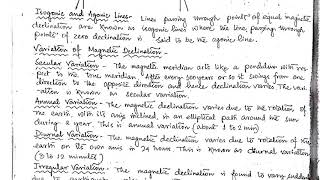 Isogonic and Agonic Lines- Lines passing through points of equal magnetic
declination are known as isogonic lines where the line passing through
points of zero declination is said to be the agonic line.
Variation of Magnetic Declination-
Secular Variation - The magnetic meridian acts like a pendulum with res
pect to the true meridian. After every 300 years or so it swings from one
direction to the opposite direction and hence declination varies. The vari
ation is known as secular variation.
Annual Variation - The magnetic declination varies due to the rotation of
the earth, with its axis inclined, in an elliptical path around the sun
during a year. This is annual variation (about 1 to 2 min)
Diurnal Variation - The magnetic declination varies due to rotation of the
earth on its own axis in 24 hours. This is known as diurnal variation
(3 to 12 minutes)
Irregular Variation - The magnetic declination is found to vary suddenly